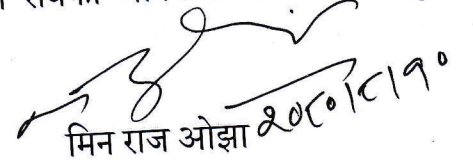 मिन राज ओझा २०८०।८।१०